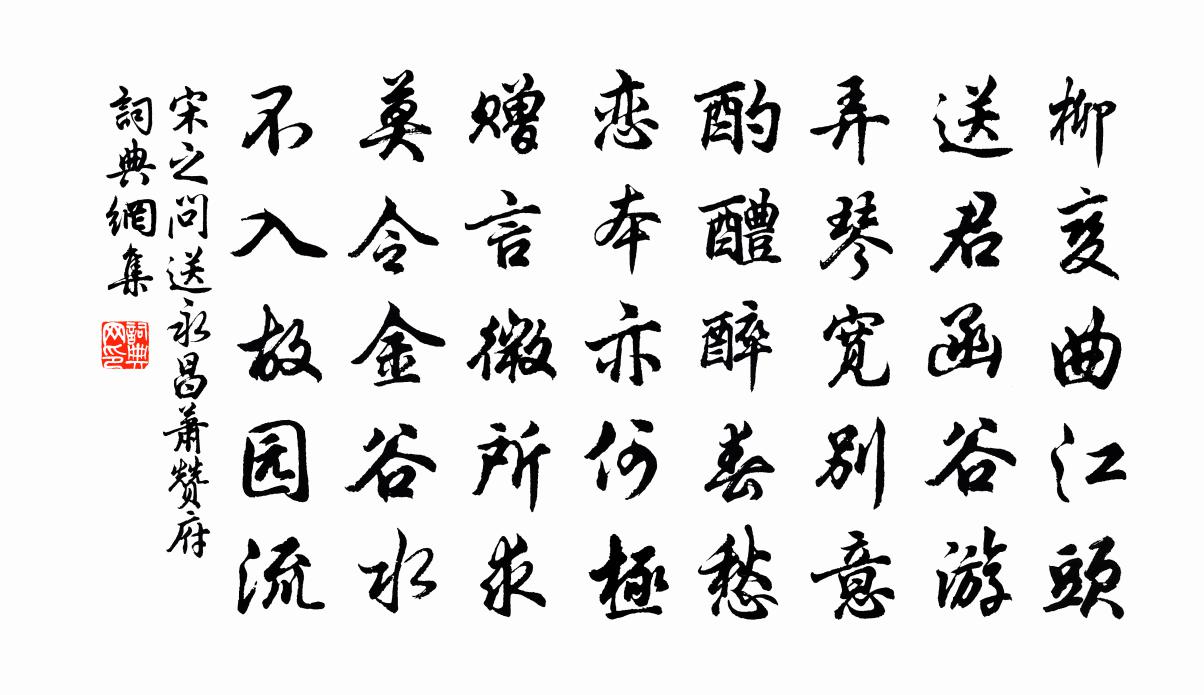 柳变曲江頭
送君函谷游
弄琴寬别意
酌醴醉春愁
恋本亦何極
赠言微所求
莫令金谷水
不入故园流
宋之問送永昌蕭赞府
詞典網集
詞典网印